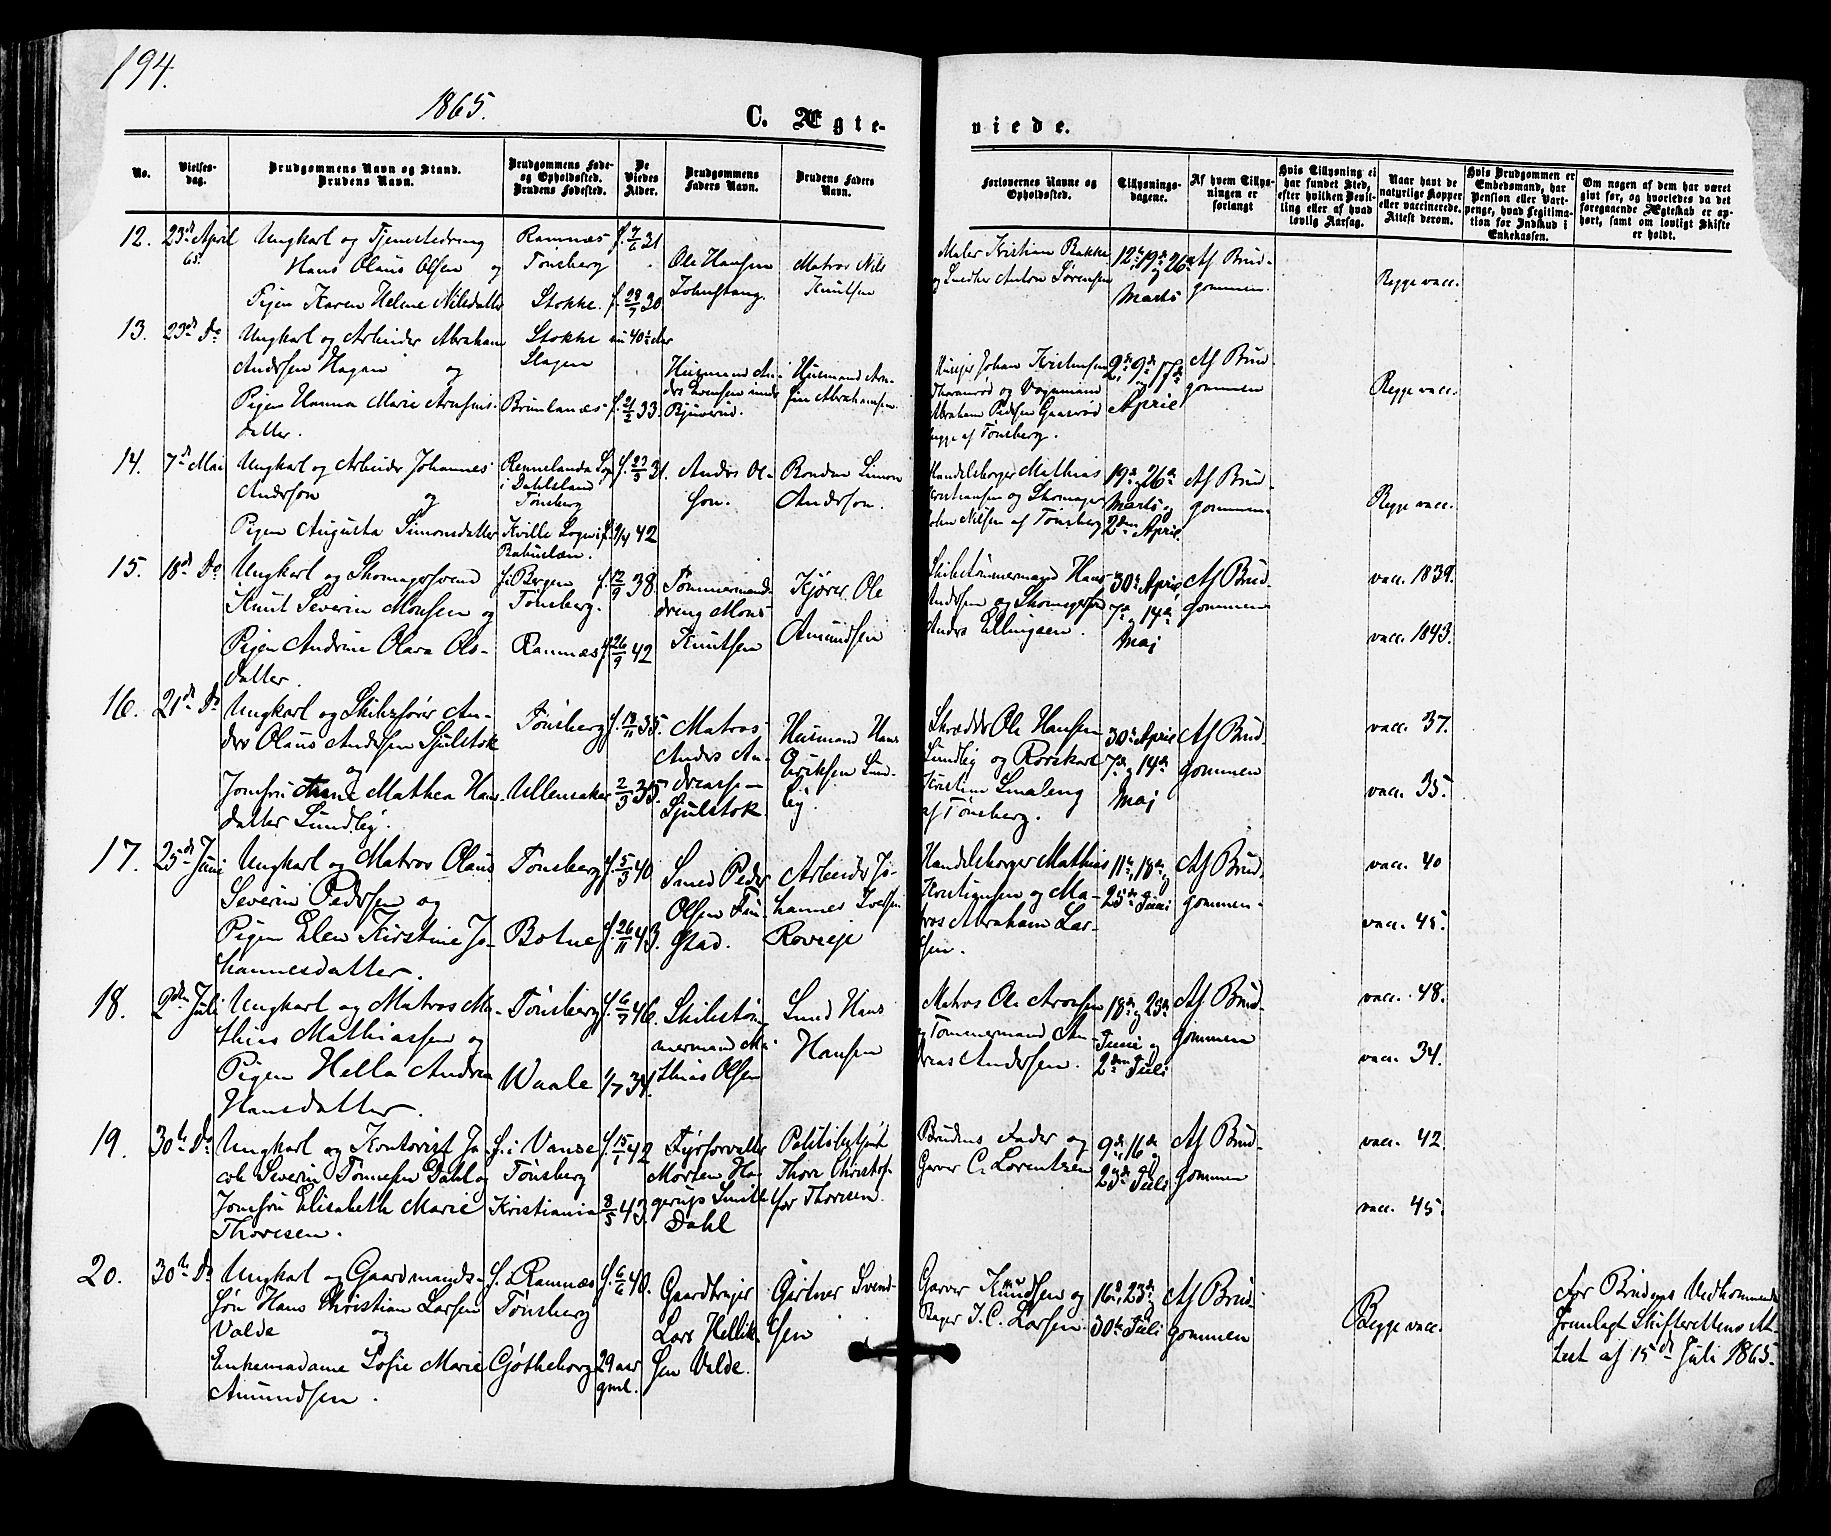 194.
1865.
C. Ægteviede.
No.
Vielsesdag.
Brudgommens Navn og Stand.
Brudens Navn.
Brudgommens Føde- og Opholdssted.
Brudens Fødested.
De Viedes Alder.
Brudgommens Faders Navn.
Brudens Faders Navn.
Forlovernes Navne og Opholdssted.
Tillysnings-dagene.
Af hvem Tillysningen er forlangt
Hvis Tillysning ei har fundet Sted, efter hvilken Bevilling eller af hvad lovlig Aarsag.
Naar havt de naturlige Kopper eller vaccinerede. Attest derom.
Hvis Brudgommen er Embedsmand, har Pension eller Vartpenge, hvad Legitimation for Indskud i Enkekassen.
Om nogen af dem har været gift før, og hvorledes da det foregaaende Ægteskab er ophørt, samt om lovligt Skifte er holdt.
12. 23de April 65.
Ungkarl og Tjenestedreng
Hans Olaus Olsen og
Pigen Karen Helene Nilsdatter
Ramnæs
Tønsberg
Stokke
f. 7/6 31
f. 28/7 30
Ole Hansen
Matros Nils
Knutsen
Maler Kristian Bakke
og Smedker Anton Sørensen
12te 19de og 26de
Marts
Af Brudgommen.
Begge vacc.
13. 23de Do
Ungkarl og Arbeider Abraham
Andersen Hagen og
Pigen Hanna Marie Arnfins-
datter.
Stokke
Slagen
Brunlanæs
40 Aar
f. 21/2 33.
Husmand An-
Husmand Arn-
fin Abrahamsen.
Johan Kristensen
og Vognmand
Abraham Pedersen Gaaserød
begge af Tønsberg.
2den 9de og 17de
April
Af Brudgommen
Begge vacc.
14. 7de Mai
Ungkarl og Arbeider Johannes
Anderson og
Pigen Augusta Simonsdatter
Rennelanda Sogn
i Dahlsland
Tønsberg
Kville Sogn i
Bahuslæn.
f. 23/5 31.
f. 9/4 42
Anders Ol-
son.
Bonden Simon
Anderson.
Handelsborger Mathias
Kristiansen og Skomager
John Nilsen af Tønsberg
19de og 26de
Marts og
2den April.
Af Brudgommen
Begge vacc.
15. 18de Do
Ungkarl og Skomagersvend
Knut Severin Monsen og
Pigen Andrine Olava Ols-
datter.
f. i Bergen
Tønsberg.
Ramnæs
f. 12/9 38.
f. 26/9 42
Tømmermand-
dreng Mons
Knutsen
Kjører Ole
Amundsen
Skibstømmermand Hans
Andersen og Skomagersvend
Anders Ellingsen.
30te April
7de og 14de
Maj
Af Brudgommen
vacc. 1839.
vacc. 1843.
16. 21de Do
Ungkarl og Skibsfører An-
ders Olaus Andersen Sjulstok
og
Jomfru Anne Mathea Hans-
datter Lundby.
Tønsberg
Ullensaker
f. 18/11 35.
2/3 35.
Matros
Anders An-
dreasse-
Sjulstok.
Husmand Hans
Eriksen Lund-
by.
Skrædder Ole Hansen
Lundby og Rorskarl
Kristian Smaleng
af Tønsberg.
30te April
7de og 14de
Maj
Af Brudgommen
vacc. 37.
vacc. 35.
17. 25de Juni
Ungkarl og Matros Olaus
Severin Pedersen og
Pigen Elen Kirstine Jo-
hannesdatter.
Tønsberg
Botne
f. 5/5 40
f. 26/11 43.
Smed Peder
Olsen Fin-
stad.
Arbeider Jo-
hannes Iversen
Rovseje
Handelsborger Mathias
Kristiansen og Ma-
tros Abraham Lar-
sen.
11te, 18de og
25de Juni
Af Brudgommen.
vacc. 40
vacc. 45.
18. 2den Juli
Ungkarl og Matros Ma-
thias Mathiassen og
Pigen Hella Andrea
Hansdatter.
Tønsberg
Waale
f. 6/7 46.
1/7 34.
Skibstøm-
mermand Ma-
thias Olsen
Smed Hans
Hansen
Matros Ole Aronsen
og Tømmermand An-
dreas Andersen.
18de og 25de
Juni og
2den Juli
Af Brudgommen
vacc. 48.
vacc. 34.
19. 30te Do
Ungkarl og Kontorist Ja-
cob Severin Tønnesen Dahl og
Jomfru Elisabeth Marie
Thoresen.
f. i Vanse
Tønsberg
Kristiania
f. 15/1 42
8/5 43.
Fyrforvalter
Morten Ha-
gerups Smith
Dahl
Politibetjent
Thor Christof-
fer Thoresen.
Brudens Fader og
Garver C. Lorentzen
9de, 16de og
23de Juli
Af Brudgommen
vacc. 42
vacc. 45.
20. 30te Do
Ungkarl og Gaardmands-
søn Hans Christian Larsen
Valde og
Enkemadame Sofie Marie
Amundsen.
f. i Ramnæs
Tønsberg
Gjøtheborg
f. 6/6 40.
29 aar
gml.
Gaardbruger
Lars Hellik-
sen Valde.
Gartner Svend-
sen
Garver Knudsen og
Bager J. C. Larsen.
16de, 23de og
30te Juli
Af Brudgommen
Begge vacc.
For Brudens Vedkommende
fremlagt Skifterettens At-
test af 15de Juli 1865.